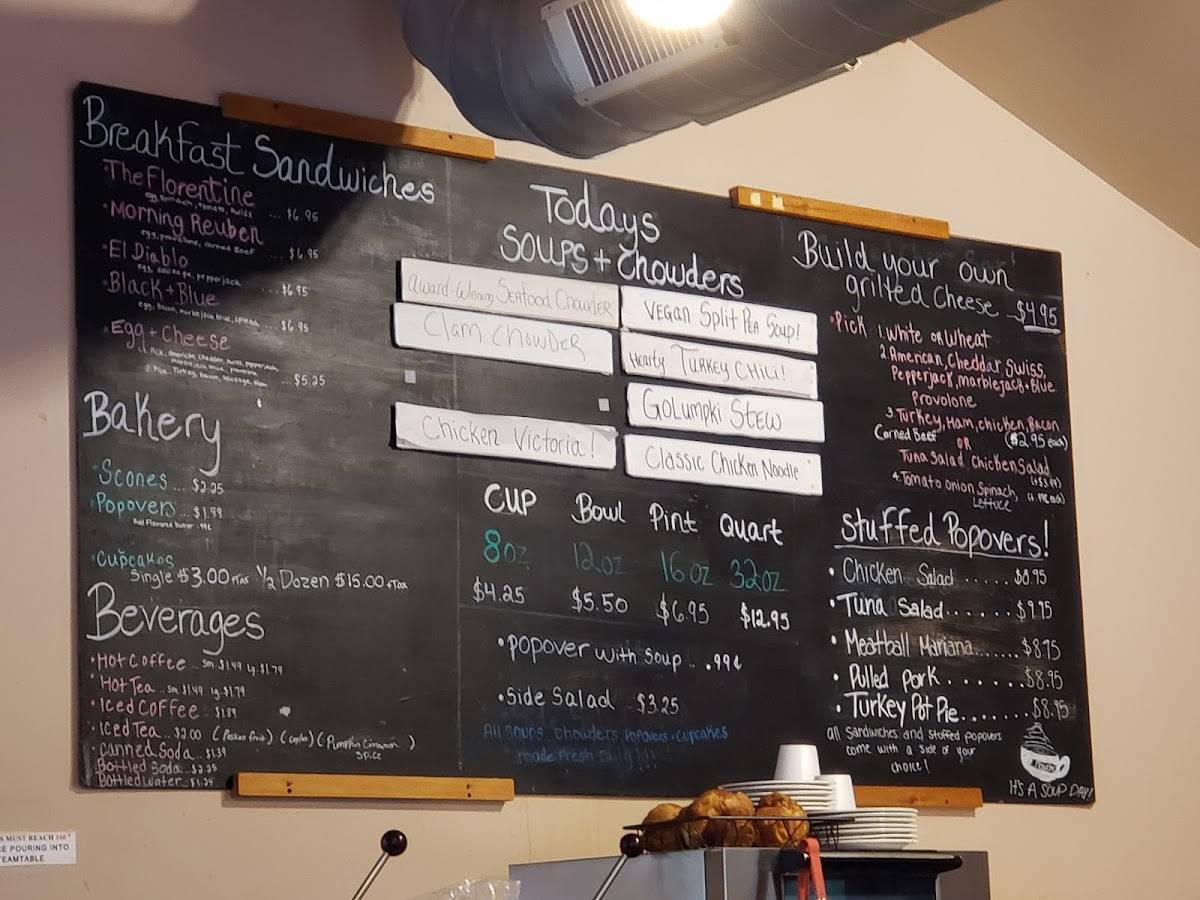 Breakfast Sandwiches
•The Florentine
egg, spinach, tomato, swiss ... $6.95
•Morning Reuben
egg, provolone, corned Beef ... $6.95
•El Diablo
egg, sausage, pepperjack ... $6.95
•Black + Blue
egg, bacon, marble jack blue, spinach ... $6.95
•Egg + Cheese
1. Pick. American, Cheddar, swiss, pepperjack,
marble jack blue, provolone
2. Pick. Turkey, bacon, sausage, Ham ... $5.25
Bakery
•Scones ... $2.25
•Popovers ... $1.99
Add Flavored butter .99¢
•Cupcakes
Single $3.00 +Tax ½ Dozen $15.00 +Tax
Beverages
•Hot Coffee .. sm. $1.49 lg. $1.79
•Hot Tea .. sm. $1.49 lg. $1.79
•Iced Coffee $1.89
•Iced Tea ... $2.00 (Passion fruit) (Ceylon) (Pumpkin Cinnamon
Spice)
•Canned Soda .. $1.39
Bottled Soda .. $2.25
Bottled Water .. $1.25
Todays
Soups + Chowders
Award-Winning Seafood Chowder
Clam Chowder
Chicken Victoria!
Vegan Split Pea Soup!
Hearty Turkey Chili!
Golumpki Stew
Classic Chicken Noodle
Cup Bowl Pint Quart
8oz 12oz 16oz 32oz
$4.25 $5.50 $6.95 $12.95
•Popover with Soup .. .99¢
•Side Salad $3.25
All soups, chowders, popovers + cupcakes
made fresh daily!!!!
Build your own
grilled Cheese ... $4.95
•Pick 1. White or Wheat
2. American, Cheddar Swiss,
Pepperjack, marblejack + Blue
Provolone
3. Turkey, Ham, chicken, Bacon
Corned Beef OR ($2.95 each)
Tuna Salad Chicken Salad
4. Tomato onion, Spinach,
Lettuce
Stuffed Popovers!
•Chicken Salad ..... $8.95
•Tuna Salad ...... $9.95
•Meatball Mariana ...... $8.95
•Pulled pork ....... $8.95
•Turkey Pot Pie ....... $8.95
all Sandwiches and Stuffed popovers
come with a side of your
choice!
IT'S A SOUP DAY!
MUST REACH 160°
POURING INTO